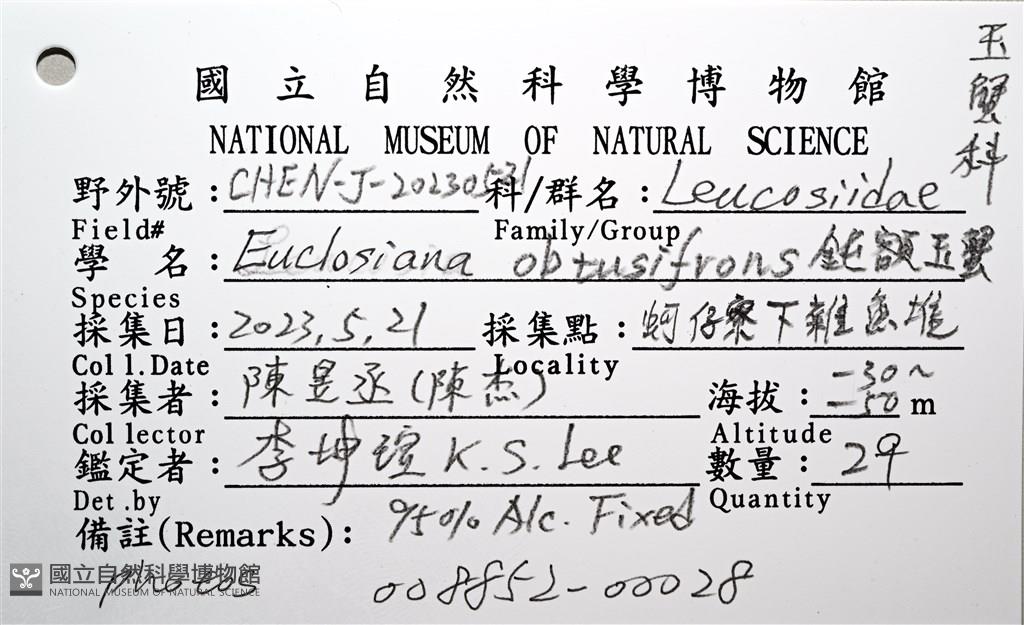 玉蟹科
國立自然科學博物館
NATIONAL MUSEUM OF NATURAL SCIENCE
野外號：CHEN-J-20230521 科/群名：Leucosiidae
Field# Family/Group
學 名：Euclosiana obtusifrons 鈍額玉蟹
Species
採集日：2023,5,21 採集點：蚵仔寮下雜魚堆
Coll.Date Locality
採集者：陳昱丞(陳杰) 海拔：-30~-50m
Collector Altitude
鑑定者：李坤瑄 K.S. Lee 數量：2♀
Det.by Quantity
備註(Remarks)：95% Alc. Fixed
photos 008852-00028
國立自然科學博物館
NATIONAL MUSEUM OF NATURAL SCIENCE